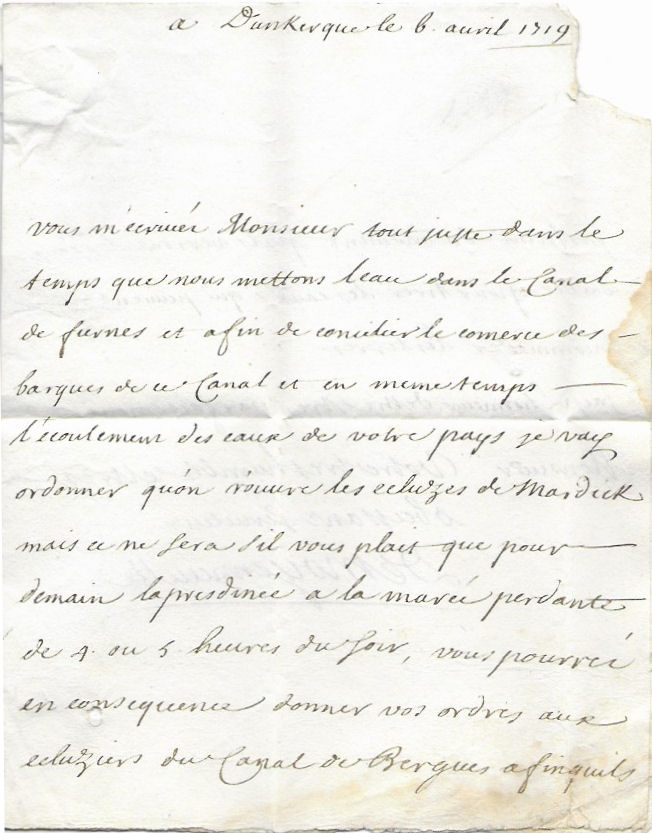 a Dunkerque le 6. auril 1719
vous m'ecriuéz Monsieur tout juste dans le
temps que nous mettons leau dans le Canal
de furnes et afin de concilier le comerce des
barques de ce Canal et en meme temps
l'ecoulement des eaux de votre pays je vay
ordonner qu'on rouure les ecluzes de Mardick
mais ce ne sera s'il vous plait que pour
demain lapresdinée a la marée perdante
de 4. ou 5 heures du soir, vous pourréz
en consequence donner vos ordres aux
ecluziers du Canal de Bergues afinquils